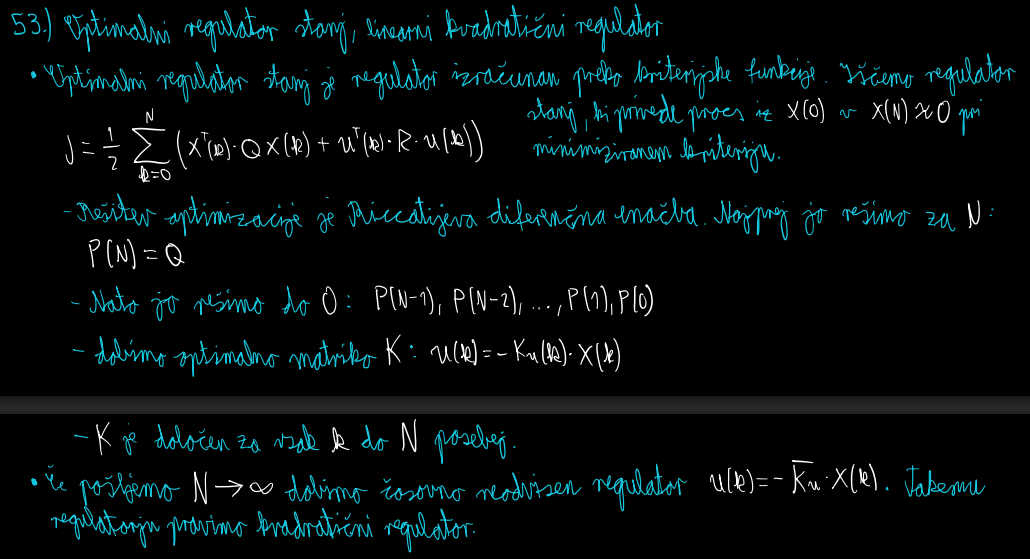 53.) Optimalni regulator stanj, linearni kvadratični regulator
• Optimalni regulator stanj je regulator izračunan preko kriterijske funkcije. Iščemo regulator
stanj, ki privede proces iz X(0) v X(N)≈0 pri
minimiziranem kriteriju.
J = 1/2 ∑_{k=0}^{N} (X^T(k)·Q X(k) + u^T(k)·R·u(k))
- Rešitev optimizacije je Riccatijeva diferenčna enačba. Najprej jo rešimo za N:
P(N) = Q
- Nato jo rešimo do 0: P(N-1), P(N-2), ..., P(1), P(0)
- dobimo optimalno matriko K: u(k) = -K_u(k)·X(k)
- K je določen za vsak k do N posebej.
• Če pošljemo N→∞ dobimo časovno neodvisen regulator u(k) = -K̅_u·X(k). Takemu
regulatorju pravimo kvadratični regulator.